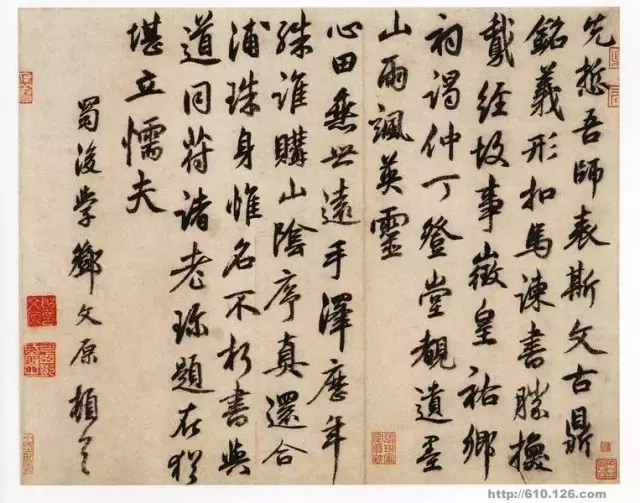 先哲吾師表斯文古鼎
銘義形扣馬諫書勝換
鵞經故事徵皇祐鄉
祠謁仲丁登堂覩遺墨
山雨颯英靈
心田無世遠手澤歷年
殊誰購山陰序真還合
浦珠身惟名不朽書與
道同符諸老珎題在猶
堪立懦夫
蜀後學鄧文原頓首
http://610.126.com